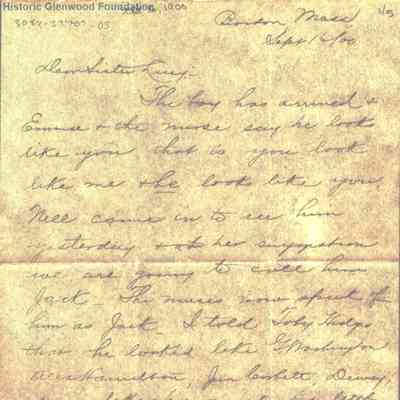 Historic Glenwood Foundation 10:00
3082-33707-05
Boston Mass
Sept 16/00
Dear Sister Lucy:-
The boy has arrived &
Emmie & the nurse say he looks
like you that is you look
like me & he looks like you.
Nell came in to see him
yesterday & at her suggestion
we are going to call him
Jack - The nurses now speak of
him as Jack. I told Toby Hedge
that he looked like G. Washington
Alex Hamilton, Jim Corbett, Dewey,